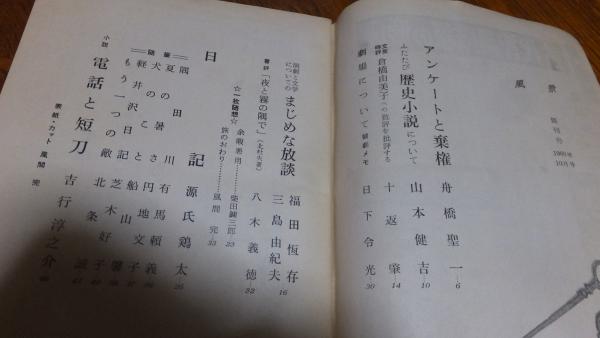 風景
創刊号
1960年
10月号
アンケートと棄権 舟橋聖一 6
ふたたび歴史小説について 山本健吉 10
文芸時評 倉橋由美子への批評を批評する 十返肇 14
劇場について 観劇メモ 日下令光 30
演劇と文学についての まじめな放談 福田恆存 三島由紀夫 16
書評 「夜と霧の隅で」(北杜夫著) 八木義徳 32
☆一枚随想☆
余暇善用 柴田錬三郎 23
旅のおわり 風間完 33
日記 源氏鶏太
随筆
隅田川 有馬頼義
夏の暑さ 円地文子
犬のこと 船山馨
軽井沢日記 芝木好子
もう一つの敵 北条誠
小説 電話と短刀 吉行淳之介
表紙・カット 風間完